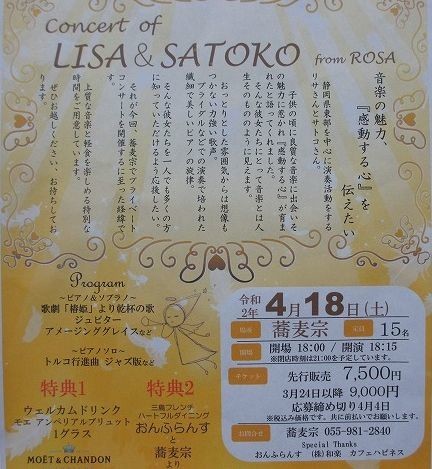 Concert of
LISA & SATOKO from ROSA
音楽の魅力、
『感動する心』を
伝えたい
静岡県東部を中心に演奏活動をする
リサさんとサトコさん。
子供の頃に良質な音楽に出会いそ
の魅力に惹かれ『感動する心』が育ま
れたと語ってくれました。
そんな彼女たちにとって音楽とは人
生そのもののように見えます。
おっとりとした雰囲気からは想像も
つかない力強い歌声。
ブライダルなどでの演奏で培われた
繊細で美しいピアノの旋律。
そんな彼女たちを一人でも多くの方
に知っていただけるよう応援したい。
それが今回、蕎麦宗でプライベート
コンサートを開催するに至った経緯で
す。
上質な音楽と軽食を楽しめる特別な
時間をご用意しています。
ぜひお越しください、お待ちしてお
ります。
Program
～ピアノ&ソプラノ～
歌劇「椿姫」より乾杯の歌
ジュピター
アメージンググレイスなど
～ピアノソロ～
トルコ行進曲 ジャズ版など
特典1
ウェルカムドリンク
モエ アンペリアルブリュット
1グラス
MOËT & CHANDON
特典2
三島フレンチ
ハートフルダイニング
おんふらんす
と
蕎麦宗
より
令和
2年 4月18日(土)
場所 蕎麦宗 定員 15名
開場 18:00 / 開演 18:15
※閉店時刻は21:00を予定しています。
チケット 先行販売 7,500円
3月24日以降 9,000円
応募締め切り4月4日
※税込み価格です。共に前払いでお願いします。
お問合せ 蕎麦宗 055-981-2840
Special Thanks
おんふらんす (株)和楽 カフェハピネス